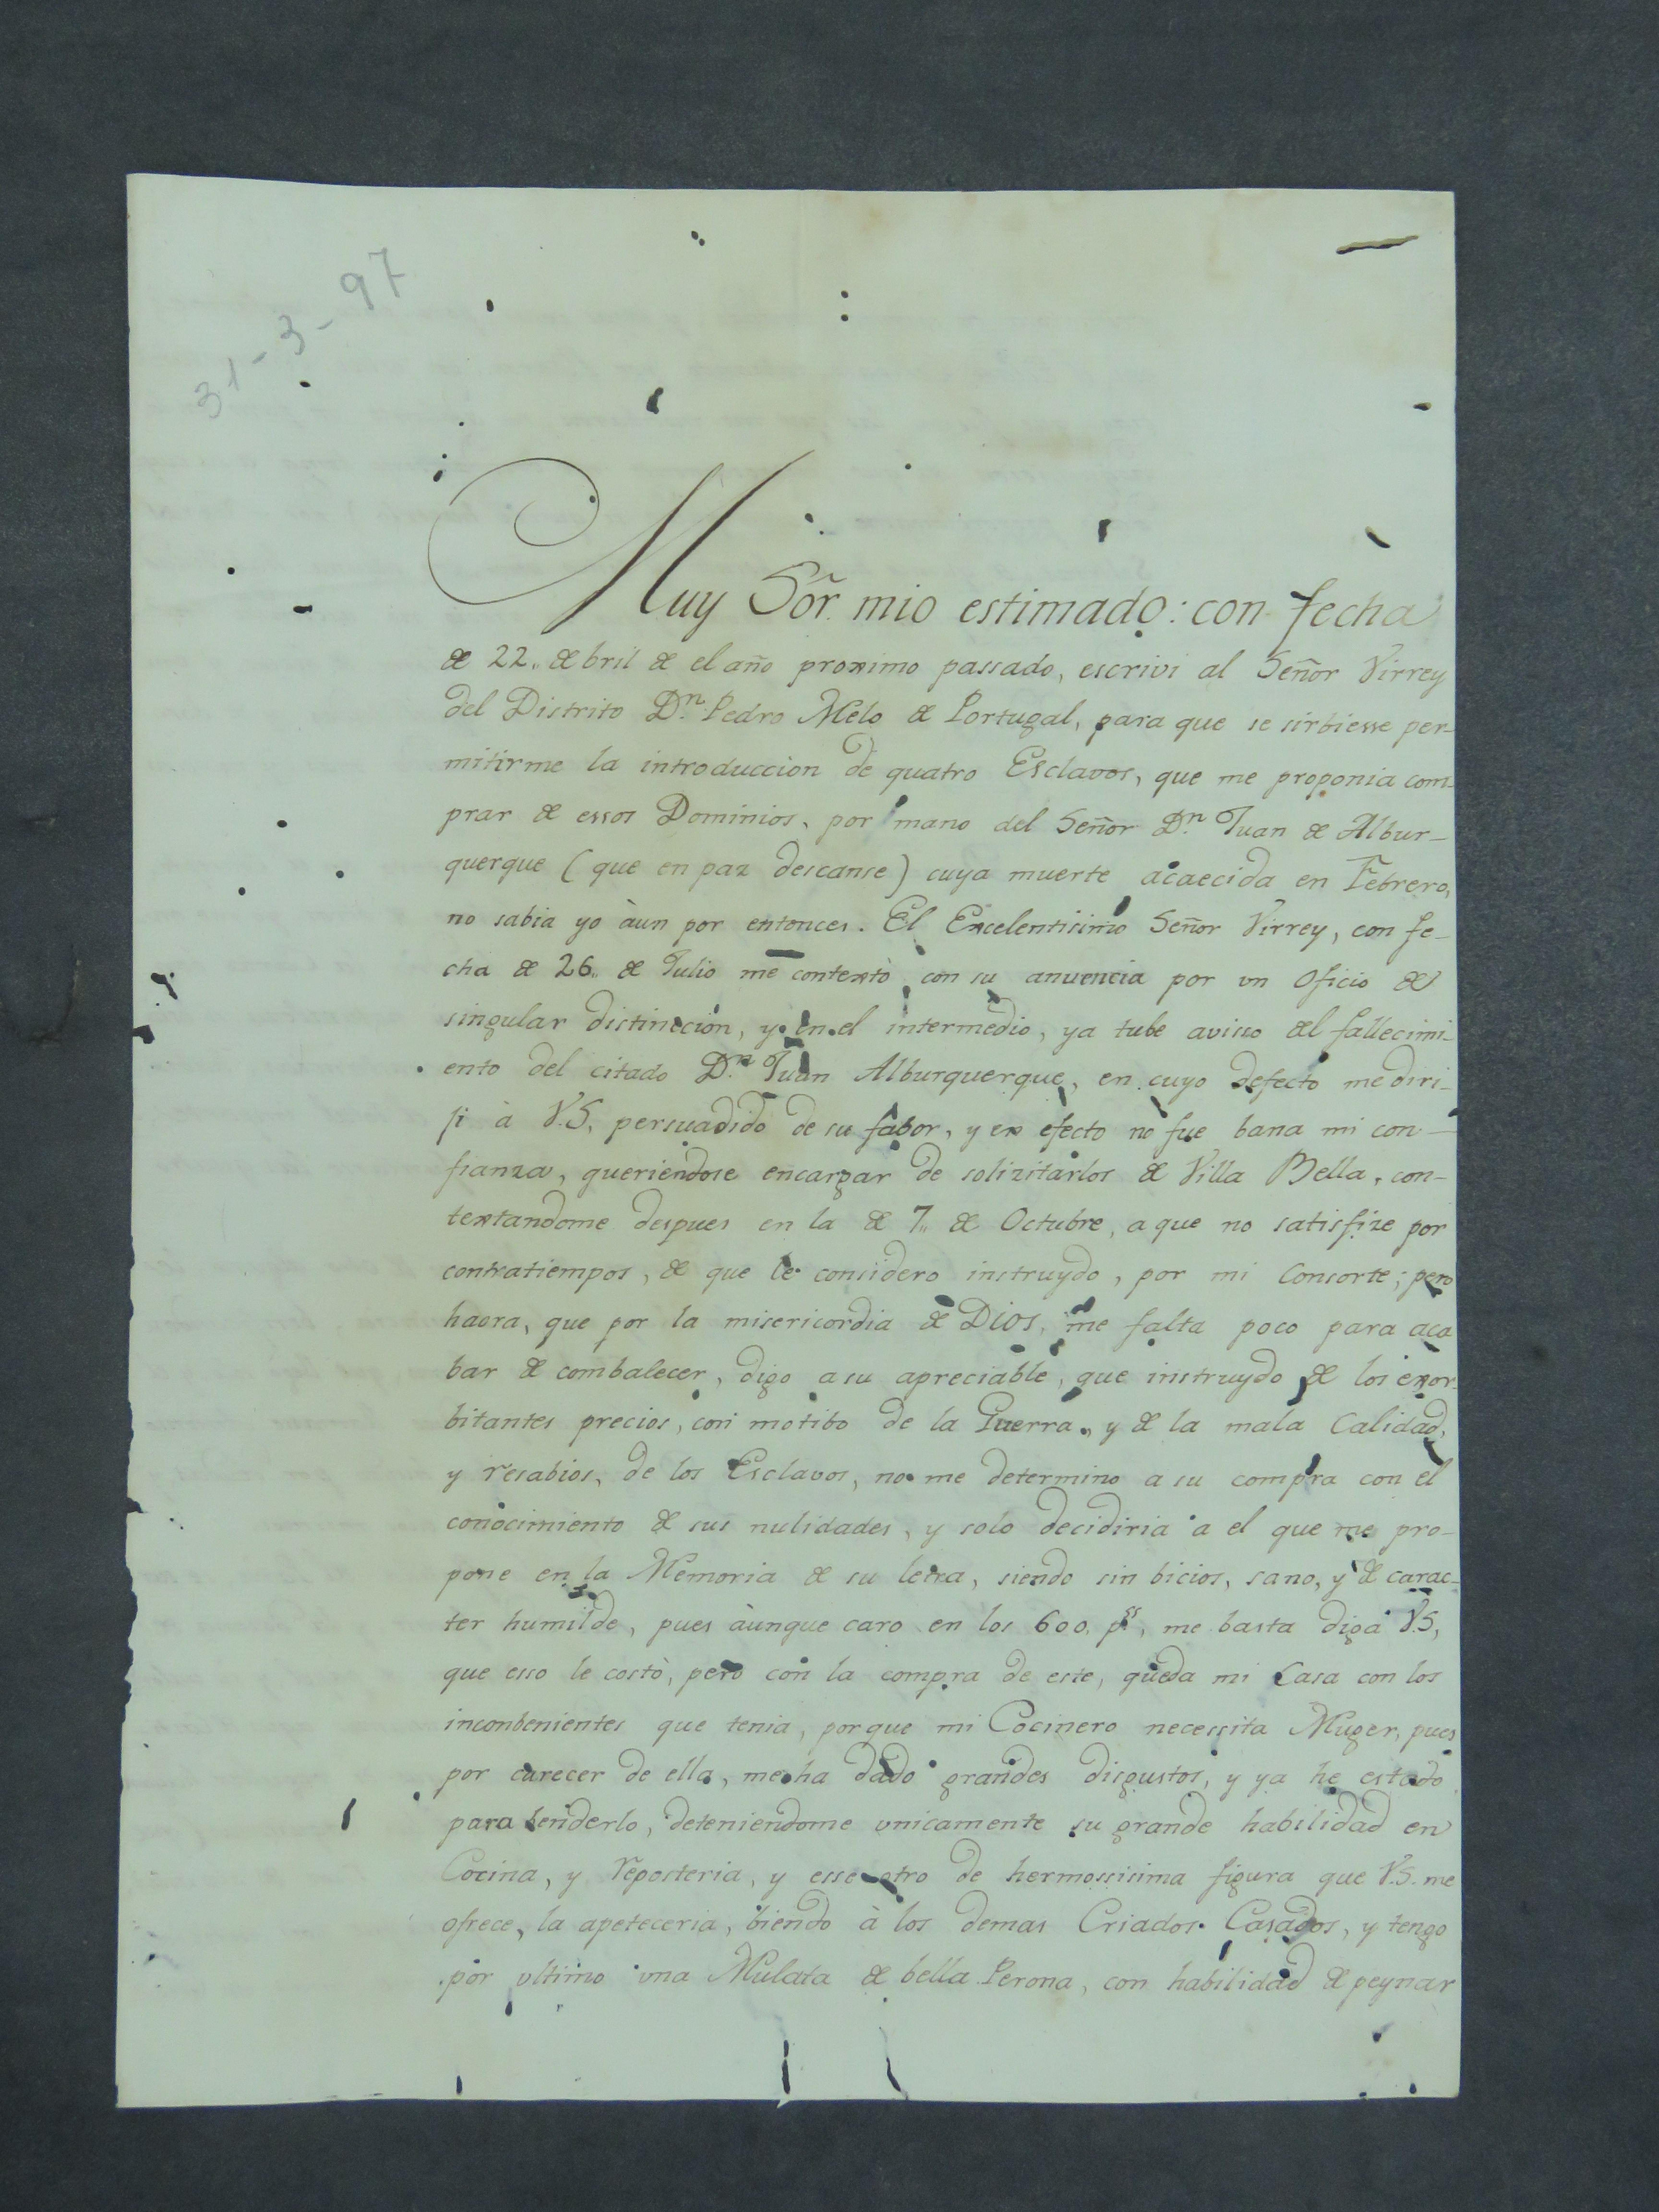 31-3-97
Muy Sõr. mio estimado: con fecha
de 22,, de bril de el año proximo passado, escrivi al Señor Virrey
del Distrito Dn. Pedro Melo de Portugal, para que se sirbiesse per-
mitirme la introduccion de quatro Esclavos, que me proponia com-
prar de essos Dominios, por mano del Señor Dn. Juan de Albur-
querque (que en paz descanse) cuya muerte acaecida en Febrero,
no sabia yo àun por entonces. El Excelentisimo Señor Virrey, con fe-
cha de 26,, de Julio me contextò, con su anuencia por un Oficio de
singular distincion, y en el intermedio, ya tube avisso del fallecimi-
ento del citado Dn. Juan Alburquerque, en cuyo defecto me diri-
ji à V.S, persuadido de su fabor, y en efecto no fue bana mi con-
fianza, queriendose encargar de solizitarlos de Villa Bella, con-
textandome despues en la de 7,, de Octubre, a que no satisfize por
contratiempos, de que le considero instruydo, por mi Consorte; pero
haora, que por la misericordia de Dios, me falta poco para aca
bar de combalecer, digo a su apreciable, que instruydo de los exor-
bitantes precios, con motibo de la Guerra, y de la mala Calidad,
y resabios, de los Esclavos, no me determino a su compra con el
conocimiento de sus nulidades, y solo decidiria a el que me pro-
pone en la Memoria de su letra, siendo sin bicios, sano, y de carac-
ter humilde, pues àunque caro en los 600. pss, me basta diga V.S,
que esso le costò, pero con la compra de este, queda mi Casa con los
inconbenientes que tenia, porque mi Cocinero necessita Muger, pues
por carecer de ella, me ha dado grandes disgustos, y ya he estado
para benderlo, deteniendome unicamente su grande habilidad en
Cocina, y reposteria, y esse otro de hermossisima figura que V.S. me
ofrece, la apeteceria, biendo à los demas Criados Casados, y tengo
por ultimo una Mulata de bella Perona, con habilidad de peynar